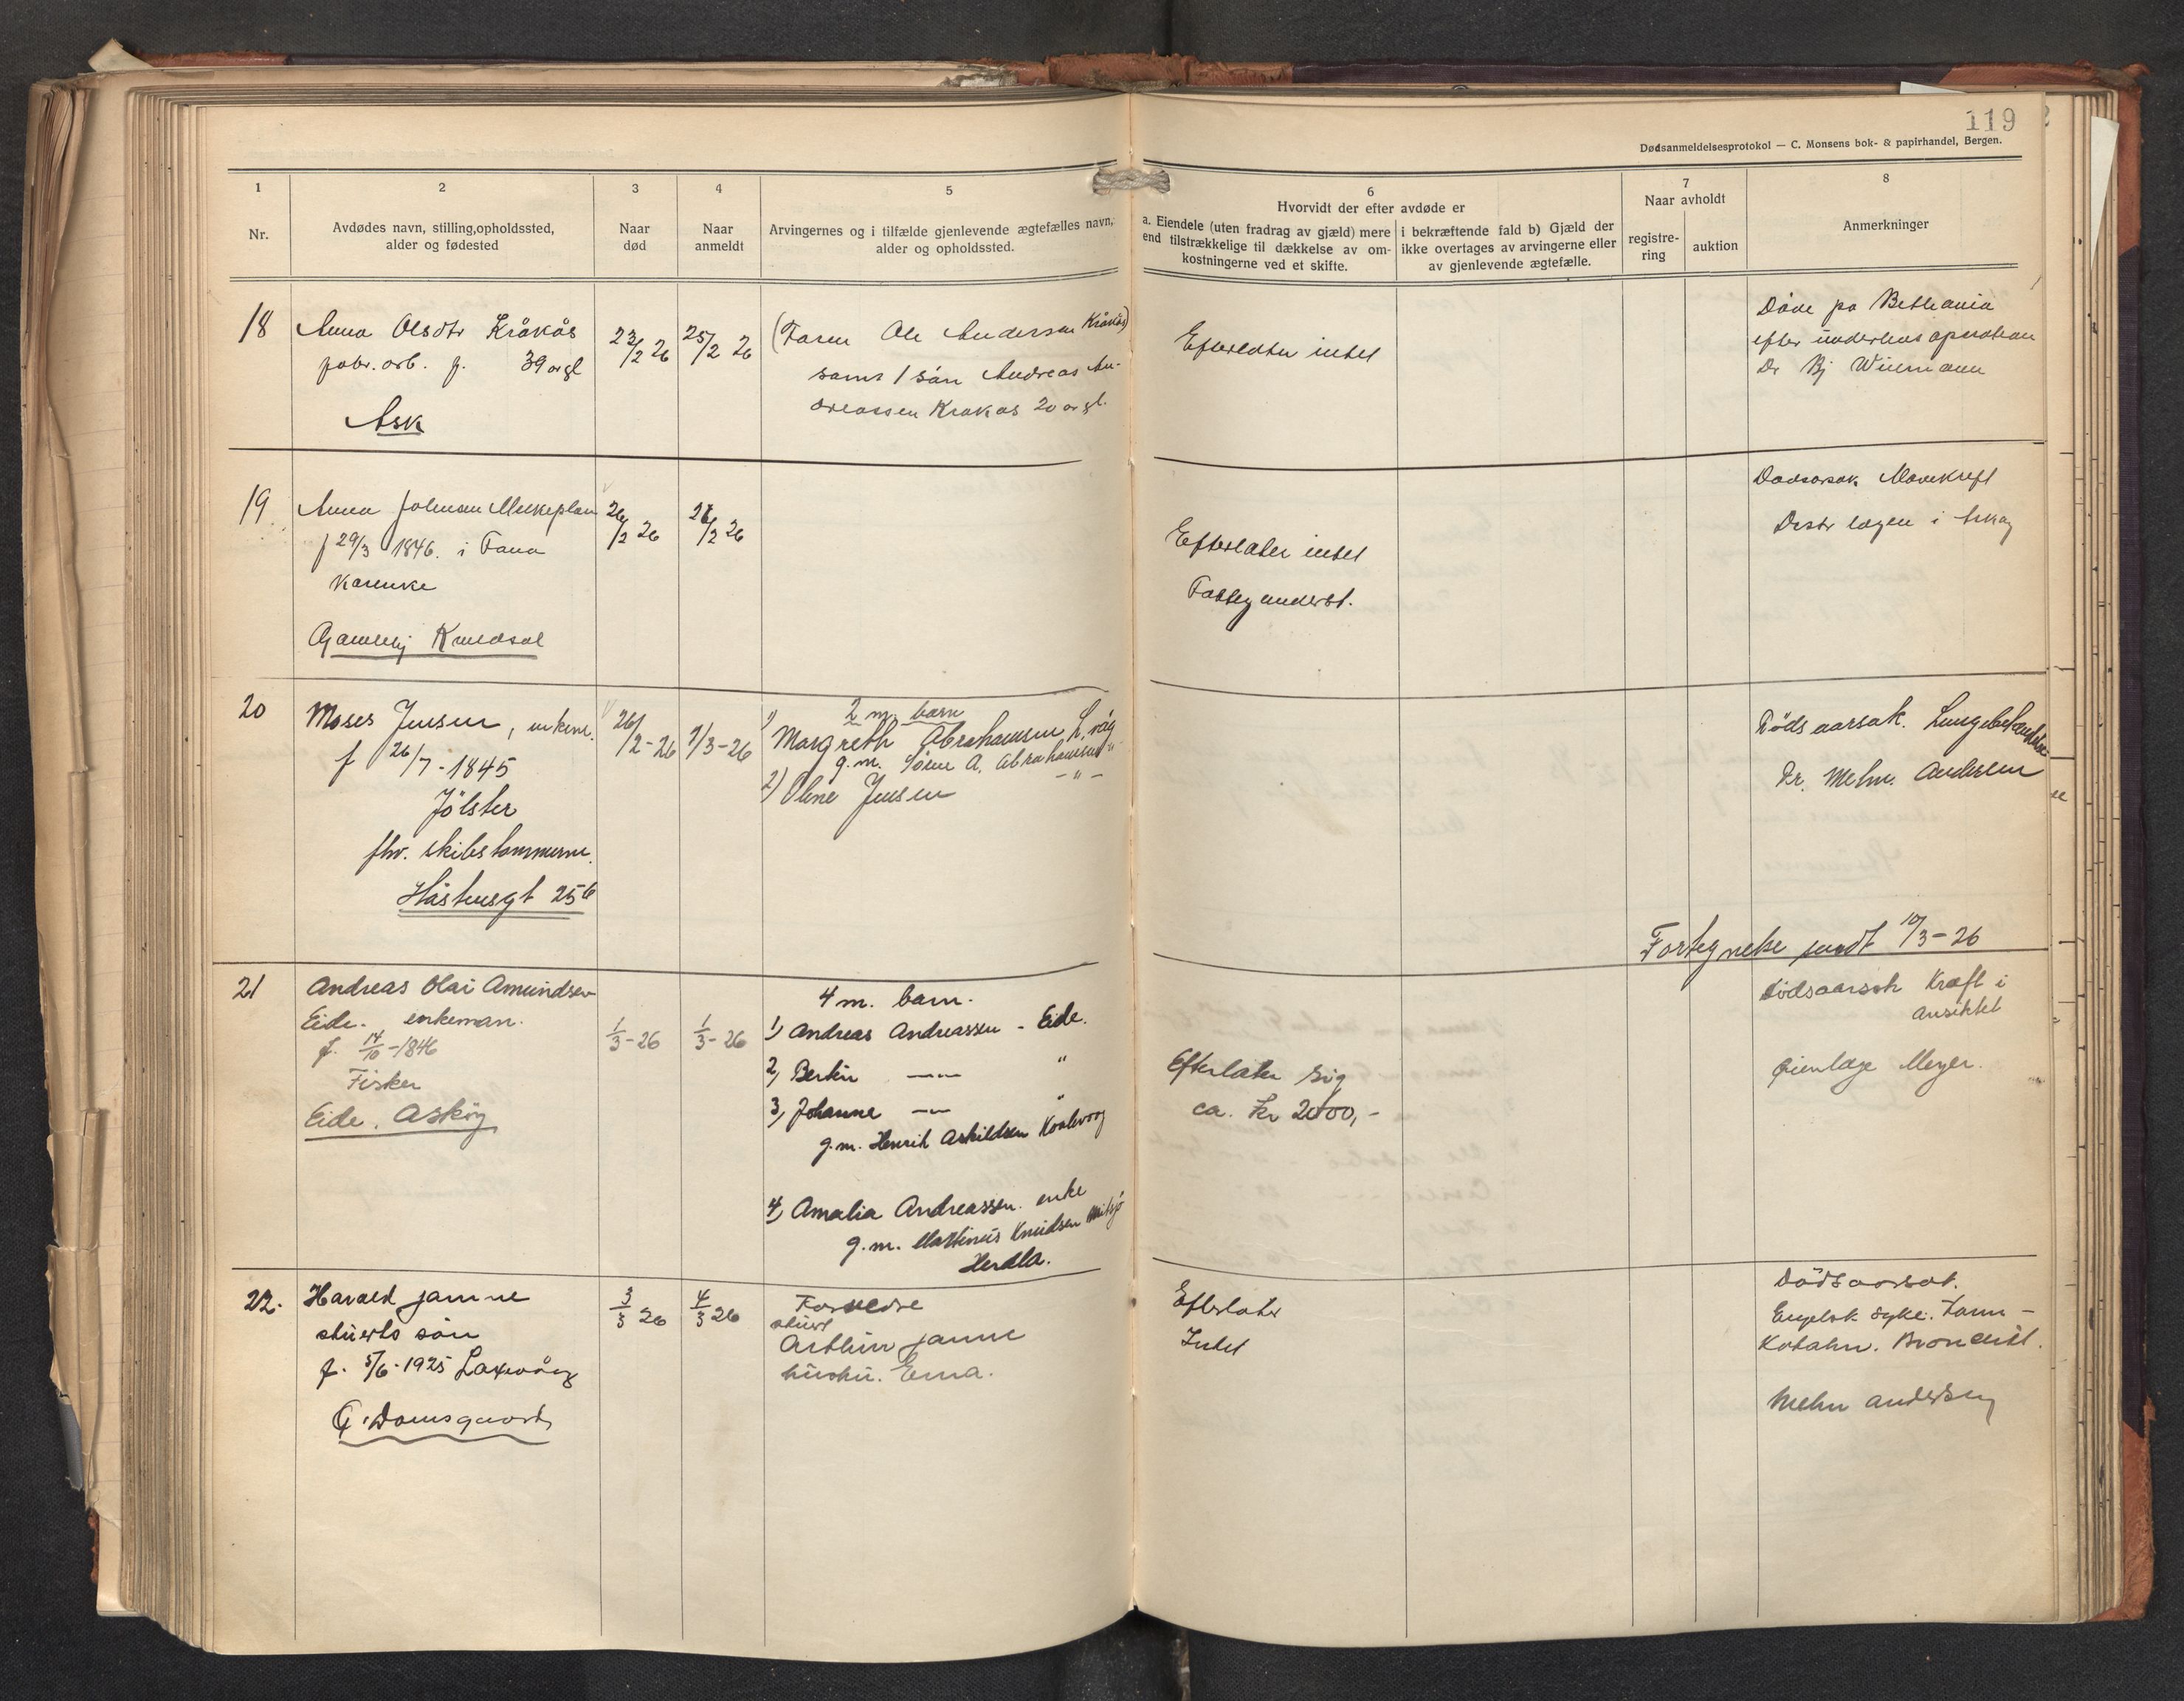 119
Dødsanmeldelsesprotokol — C. Monsens bok- & papirhandel, Bergen.
1
2
3
4
5
6
7
8
Nr.
Avdødes navn, stilling, opholdssted,
alder og fødested
Naar
død
Naar
anmeldt
Arvingernes og i tilfælde gjenlevende ægtefælles navn,
alder og opholdssted.
Hvorvidt der efter avdøde er
a. Eiendele (uten fradrag av gjæld) mere
end tilstrækkelige til dækkelse av om-
kostningerne ved et skifte.
i bekræftende fald b) Gjæld der
ikke overtages av arvingerne eller
av gjenlevende ægtefælle.
Naar avholdt
registre-
ring
auktion
Anmerkninger
18
Anna Olsdtr Kråkås
fabr. arb. f. 39 årgl
Ask
23/2 26
25/2 26
(Faren Ole Andersen Kråkås)
samt 1 sön Andreas An-
dreassen Kråkås 20 årgl.
Efterlater intet
Döde på Bethania
efter underlivs operation
Dr Bj
19
Anna Johnsen
f 29/3 1846. i Fana
Gamlehj Knudsal
26/2 26
26/2 26
Efterlater intet
Fattigunderst.
Dödsårsak Mavekreft
Distr lægen i Askøy
20
Moses Jensen, enkem.
f 26/7-1845
Jölster
fhv. skibstömmerm.
Håsteinsgt 25b
26/2-26
1/3-26
2 m. barn
1) Margreth Abrahamsen L.våg
g.m. Sören A. Abrahamsen "
2) Oline Jensen - " -
Dödsaarsak. Lungebetændelse
Dr. Mehn. Andersen
Fortegnelse sendt 10/3-26
21
Andreas Olai Amundsen
Eide. enkeman.
f. 14/10-1846
Fisker
Eide, Asköy
1/3-26
1/3-26
4 m. barn.
1) Andreas Andreassen - Eide.
2) Bertin —"— "
3) Johanne —"— "
g.m. Henrik Askildsen
4) Amalia Andreassen. enke
g.m. Martinus Knudsen
Herdla.
Efterlater sig
ca. Kr 2000,-
Dödsaarsak Kræft i
ansiktet
Øienlæge Meyer.
22.
Harald Janne
stuerts sön
f. 5/6-1925 Laxevåg
G. Damsgaard
3/3 26
4/3 26
Forældre
stuert
Arthur Janne
hustru. Erna.
Efterlater
Intet
Dödsaarsak.
Engelsk syke. Tarm-
Katahr. Bronchit.
Mehn Andersen